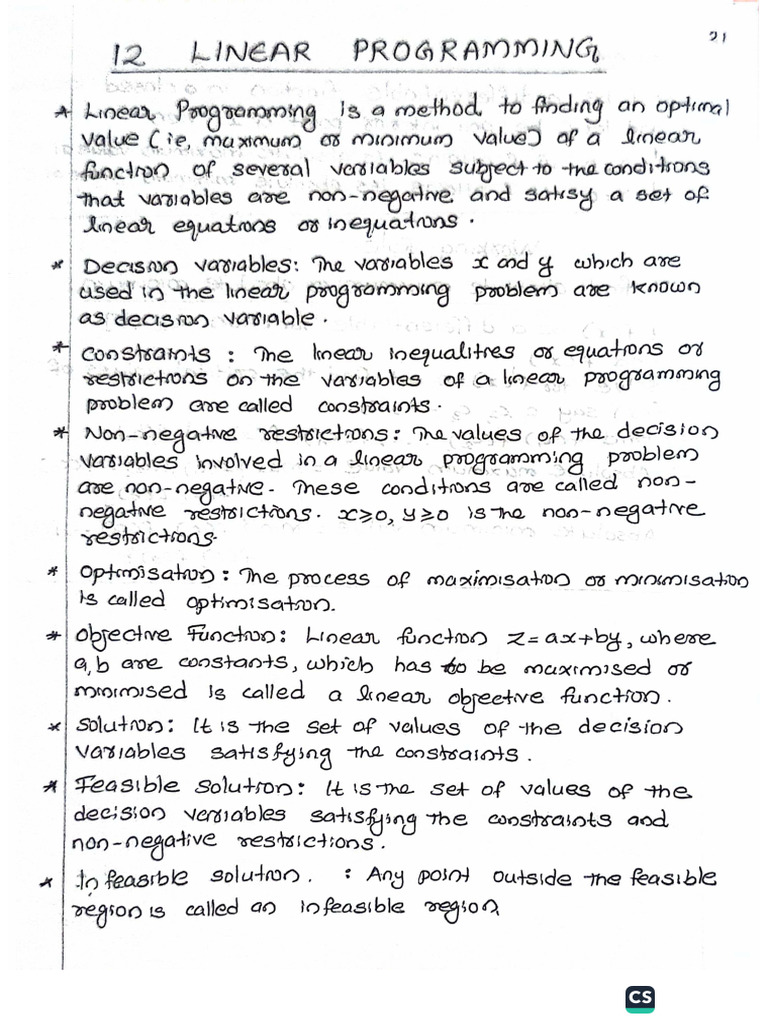 21
12 LINEAR PROGRAMMING
* Linear Programming is a method to finding an optimal
value (ie, maximum or minimum value) of a linear
function of several variables subject to the conditions
that variables are non-negative and satisy a set of
linear equations or inequations.
* Decision variables: The variables x and y which are
used in the linear programming problem are known
as decision variable.
* Constraints : The linear inequalities or equations or
restrictions on the variables of a linear programming
problem are called constraints.
* Non-negative restrictions: The values of the decision
variables involved in a linear programming problem
are non-negative. These conditions are called non-
negative restrictions. x≥0, y≥0 is the non-negative
restrictions.
* Optimisation : The process of maximisation or minimisation
is called optimisation.
* Objective Function: Linear function z=ax+by, where
a,b are constants, which has to be maximised or
minimised is called a linear objective function.
* Solution: It is the set of values of the decision
variables satisfying the constraints.
* Feasible solution: It is the set of values of the
decision variables satisfying the constraints and
non-negative restrictions.
* Infeasible solution. : Any point outside the feasible
region is called an infeasible region
CS